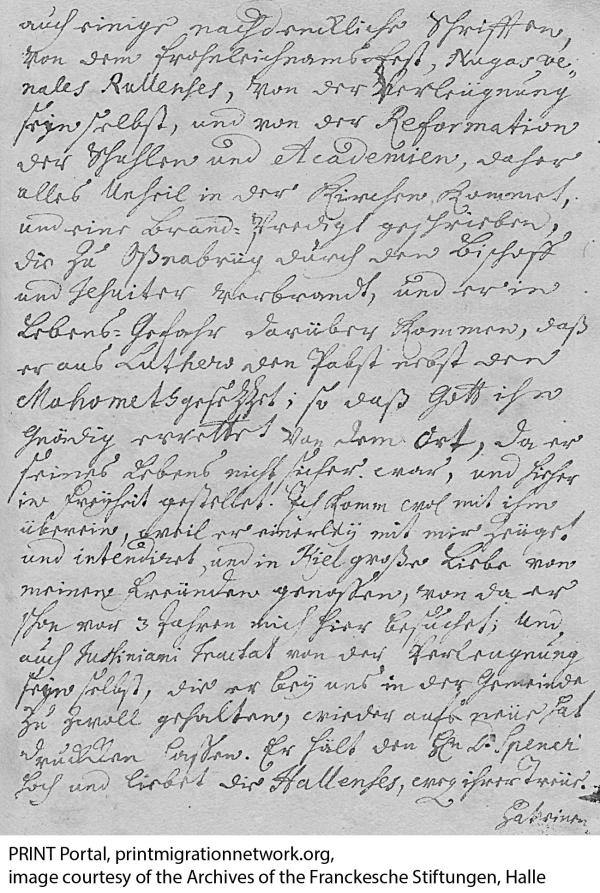 auch einige nachdrückliche Schrifften,
von dem frohnleichnams-fest, Nugas ve-
nales Rullenses, von der Verleugnung
sein selbst, und von der Reformation
der Schuhlen und Academien, daher
alles Unheil in der Kirchen kommet,
und eine Brand-Predigt geschrieben,
die zu Oßnabrüg durch den Bischoff
und Jesuiter verbrandt, und er in
Lebens-Gefahr darüber kommen, daß
er aus Luthero den Pabst nebst den
Mahomets gesetzet; so daß Gott ihn
gnädig errettet von dem Ort, da er
seines Lebens nicht sicher war, und hieher
in Freyheit gestellet. Ich komm wol mit ihm
überein, weil er einerley mit mir zeuget
und intendiret, und in Kiel große Liebe von
meinen Freunden genossen, von da er
schon vor 3 Jahren mich hier besuchet; und
auch Justiniani Tractat von der Verleugnung
sein selbst, die er bey uns in der Gemeinde
zu Zwoll gehalten, wieder aufs neue hat
drucken lassen. Er hält den Hn D. Speneri
hoch und liebet die Hallenses, weg. ihrer Treue.
Hat einen
PRINT Portal, printmigrationnetwork.org,
image courtesy of the Archives of the Franckesche Stiftungen, Halle